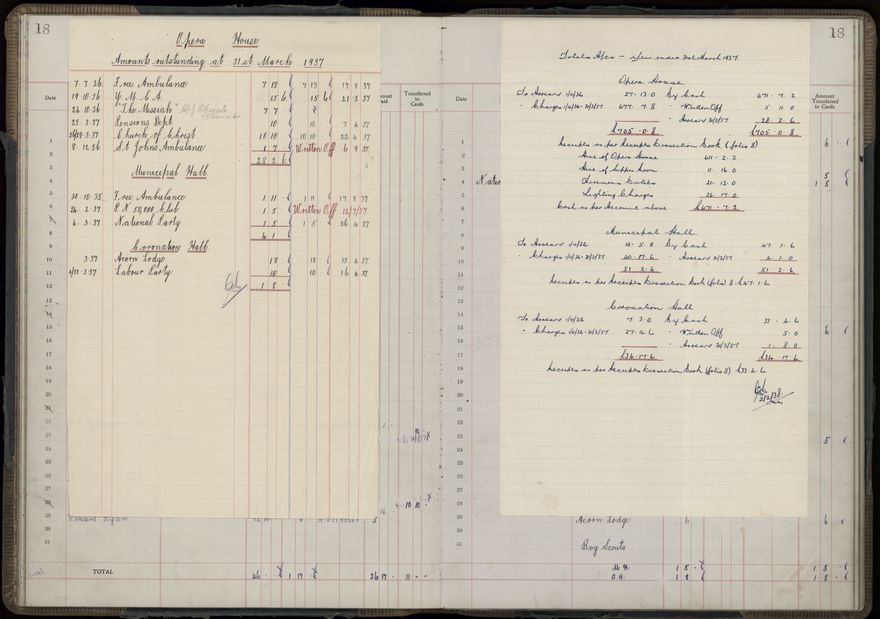 18
Opera House
Amounts outstanding at 31st March 1937
7 7 36 Free Ambulance 7 15 6 7 15 6 17 8 37
19 10 36 Y M C A 15 6 15 6 21 5 37
24 10 36 "The Messiah" 7 7 6
23 3 37 Pensions Dept 10 6 10 6 7 4 37
24/29 3 37 Church of Christ 10 10 6 10 10 6 22 4 37
8 12 36 St Johns Ambulance 1 7 6 Written Off 6 9 37
28 2 6
Municipal Hall
30 10 35 Free Ambulance 1 11 6 1 11 6 17 8 37
24 2 37 P N 50,000 Club 1 5 6 Written Off 12/7/37
4 3 37 National Party 1 5 6 1 5 6 26 4 37
4 1 6
Coronation Hall
3 37 Acorn Lodge 18 6 18 6 13 4 37
3 37 Labour Party 10 6 10 6 16 4 37
1 8 6
Date
Transferred to Cards
1
2
3
4
5
6
7
8
9
10
11
12
13
14
15
16
17
18
19
20
21
22
23
24
25
26
27
28
29
30
31
TOTAL
18
Totals Afcs - year ended 31st March 1937.
Opera House.
To Arrears 1/4/36 27. 13. 0 By Cash 671. 7. 2
" Charges 1/4/36-31/3/37 677. 7. 8 " Written Off 5. 11. 0
" Arrears 31/3/37 28. 2. 6
£705. 0. 8 £705. 0. 8
Receipts as per Receipts Dissection Book (folio 8)
Hire of Opera House 611. 2. 2
Hire of Supper Room 11. 16. 0
Firemens Duties 21. 12. 0
Lighting Charges 26. 17. 0
Cash as per Account above £671. 7. 2
Municipal Hall.
To Arrears 1/4/36 10. 5. 0 By Cash 47. 1. 6
" Charges 1/4/36-31/3/37 40. 17. 6 " Arrears 31/3/37 4. 1. 0
51. 2. 6 51. 2. 6
Receipts as per Receipts Dissection Book (folio) 8 £47. 1. 6
Coronation Hall
To Arrears 1/4/36 7. 3. 0 By Cash 33. 4. 6
" Charges 1/4/36-31/3/37 27. 14. 6 " Written Off 5. 0
" Arrears 31/3/37 1. 8. 0
£34. 17. 6 £34. 17. 6
Receipts as per Receipts Dissection Book (folio 8) £33. 4. 6
2/2/38
Date
Amount Transferred to Cards
Acorn Lodge
Boy Scouts
M H. 1 5
O H. 1 8